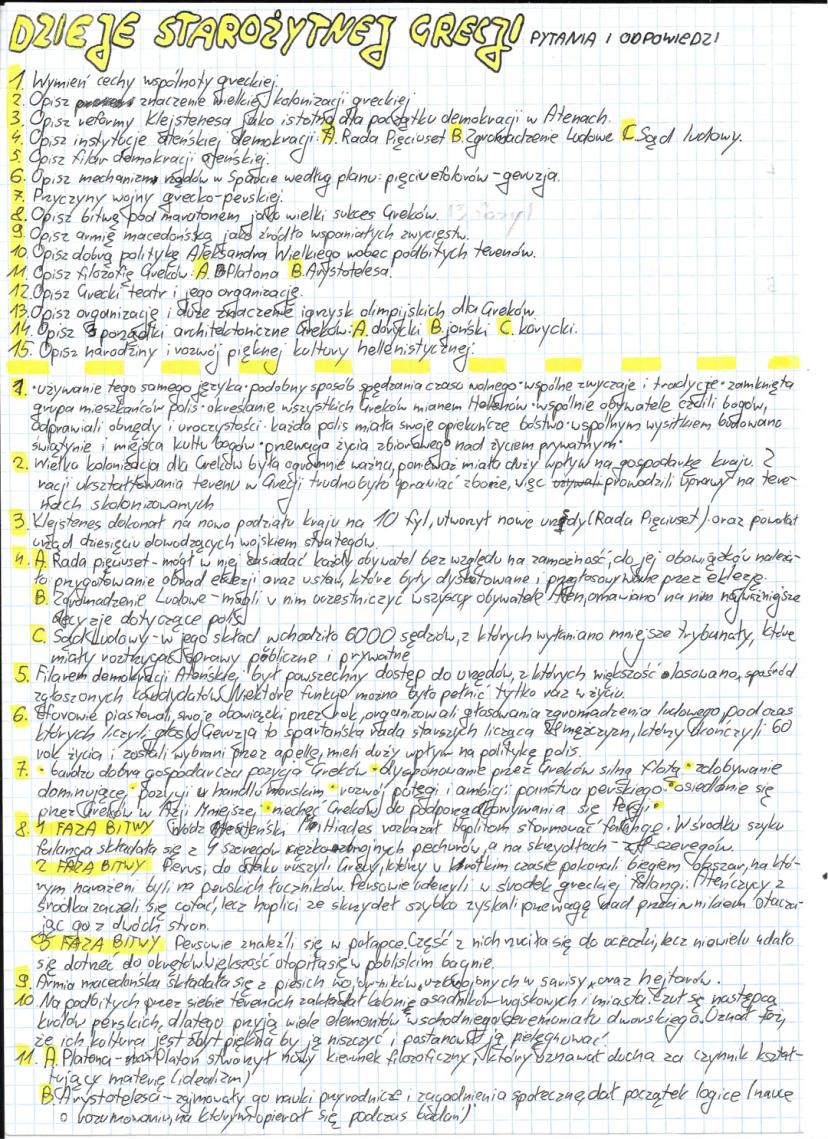 DZIEJE STAROŻYTNEJ GRECJI PYTANIA I ODPOWIEDZI
1. Wymień cechy wspólnoty greckiej.
2. Opisz znaczenie wielkiej kolonizacji greckiej
3. Opisz reformy Klejstenesa jako istotną dla początku demokracji w Atenach.
4. Opisz instytucje ateńskiej demokracji: A. Rada Pięciuset B. Zgromadzenie Ludowe C. Sąd ludowy.
5. Opisz filar demokracji ateńskiej.
6. Opisz mechanizm rządów w Sparcie według planu: pięciu eforów - geruzja.
7. Przyczyny wojny grecko-perskiej.
8. Opisz bitwę pod maratonem jako wielki sukces Greków.
9. Opisz armię macedońską jako źródło wspaniałych zwycięstw.
10. Opisz dobrą politykę Aleksandra Wielkiego wobec podbitych terenów.
11. Opisz filozofię Greków: A. Platona B. Arystotelesa.
12. Opisz Grecki teatr i jego organizację.
13. Opisz organizację i duże znaczenie igrzysk olimpijskich dla Greków.
14. Opisz 3 porządki architektoniczne Greków: A. dorycki B. joński C. korycki.
15. Opisz narodziny i rozwój pięknej kultury hellenistycznej.
1. • używanie tego samego języka • podobny sposób spędzania czasu wolnego • wspólne zwyczaje i tradycje • zamknięta
grupa mieszkańców polis • określanie wszystkich Greków mianem Hellenów • wspólnie obywatele czcili bogów,
odprawiali obrzędy i uroczystości • każda polis miała swoje opiekuńcze bóstwo • wspólnym wysiłkiem budowano
świątynie i miejsca kultu bogów • przewaga życia zbiorowego nad życiem prywatnym •
2. Wielka kolonizacja dla Greków była ogromnie ważna, ponieważ miała duży wpływ na gospodarkę kraju. Z
racji ukształtowania terenu w Grecji trudno było uprawiać zboże, więc prowadzili uprawy na tere-
nach skolonizowanych
3. Klejstenes dokonał na nowo podziału kraju na 10 fyl, utworzył nowe urzędy (Rada Pięciuset) oraz powołał
urząd dziesięciu dowodzących wojskiem strategów.
4. A. Rada pięciuset - mógł w niej zasiadać każdy obywatel bez względu na zamożność, do jej obowiązków należa-
ło przygotowanie obrad eklezji oraz ustaw, które były dyskutowane i przegłosowywane przez eklezję.
B. Zgromadzenie Ludowe - mogli w nim uczestniczyć wszyscy obywatele Aten, omawiano na nim najważniejsze
decyzje dotyczące polis
C. Sąd Ludowy - w jego skład wchodziło 6000 sędziów, z których wyłaniano mniejsze trybunały, które
miały roztrzygać sprawy publiczne i prywatne
5. Filarem demokracji Ateńskiej był powszechny dostęp do urzędów, z których większość losowano, spośród
zgłoszonych kandydatów. Niektóre funkcje można było pełnić tylko raz w życiu.
6. Eforowie piastowali swoje obowiązki przez rok, organizowali głosowania zgromadzenia ludowego, podczas
których liczyli głosy. Geruzja to spartańska rada starszych licząca 28 mężczyzn, którzy ukończyli 60
rok życia i zostali wybrani przez apellę, mieli duży wpływ na politykę polis.
7. • bardzo dobra gospodarcza pozycja Greków • dysponowanie przez Greków silną flotą • zdobywanie
dominującej pozycji w handlu morskim • rozwój potęgi i ambicji państwa perskiego • osiedlanie się
przez Greków w Azji Mniejszej • niechęć Greków do podporządkowywania się Persji •
8. 1 FAZA BITWY Wódz ateński Miltiades rozkazał hoplitom sformować falangę. W środku szyku
falanga składała się z 4 szeregów ciężkozbrojnych pechurów, a na skrzydłach - szeregów.
2 FAZA BITWY Pierwsi do ataku ruszyli Grecy, którzy w krótkim czasie pokonali biegiem obszar, na któ-
rym narażeni byli na perskich łuczników. Persowie uderzyli w środek greckiej falangi. Ateńczycy z
środka zaczęli się cofać, lecz hoplici ze skrzydeł szybko zyskali przewagę nad przeciwnikiem otacza-
jąc go z dwóch stron.
3 FAZA BITWY Persowie znaleźli się w potrapce. Część z nich rzuciła się do ucieczki, lecz niewielu udało
się dotrzeć do okrętów. Większość utopiła się w pobliskim bagnie.
9. Armia macedońska składała się z pieszych wojowników, uzbrojonych w sarisy, oraz hejtarów.
10. Na podbitych przez siebie terenach zakładał kolonie osadników wojskowych i miasta. Czuł się następcą
królów perskich, dlatego przyjął wiele elementów wschodniego ceremoniału dworskiego. Uznał też,
że ich kultura jest zbyt piękna by ją niszczyć i postanowił ją pielęgnować.
11. A. Platona - Platon stworzył nowy kierunek filozoficzny, który uznawał ducha za czynnik kształ-
tujący materię (idealizm)
B. Arystotelesa - zajmowały go nauki przyrodnicze i zagadnienia społeczne, dał początek logice (nauce
o rozumowaniu, na którym opierał się podczas badań)